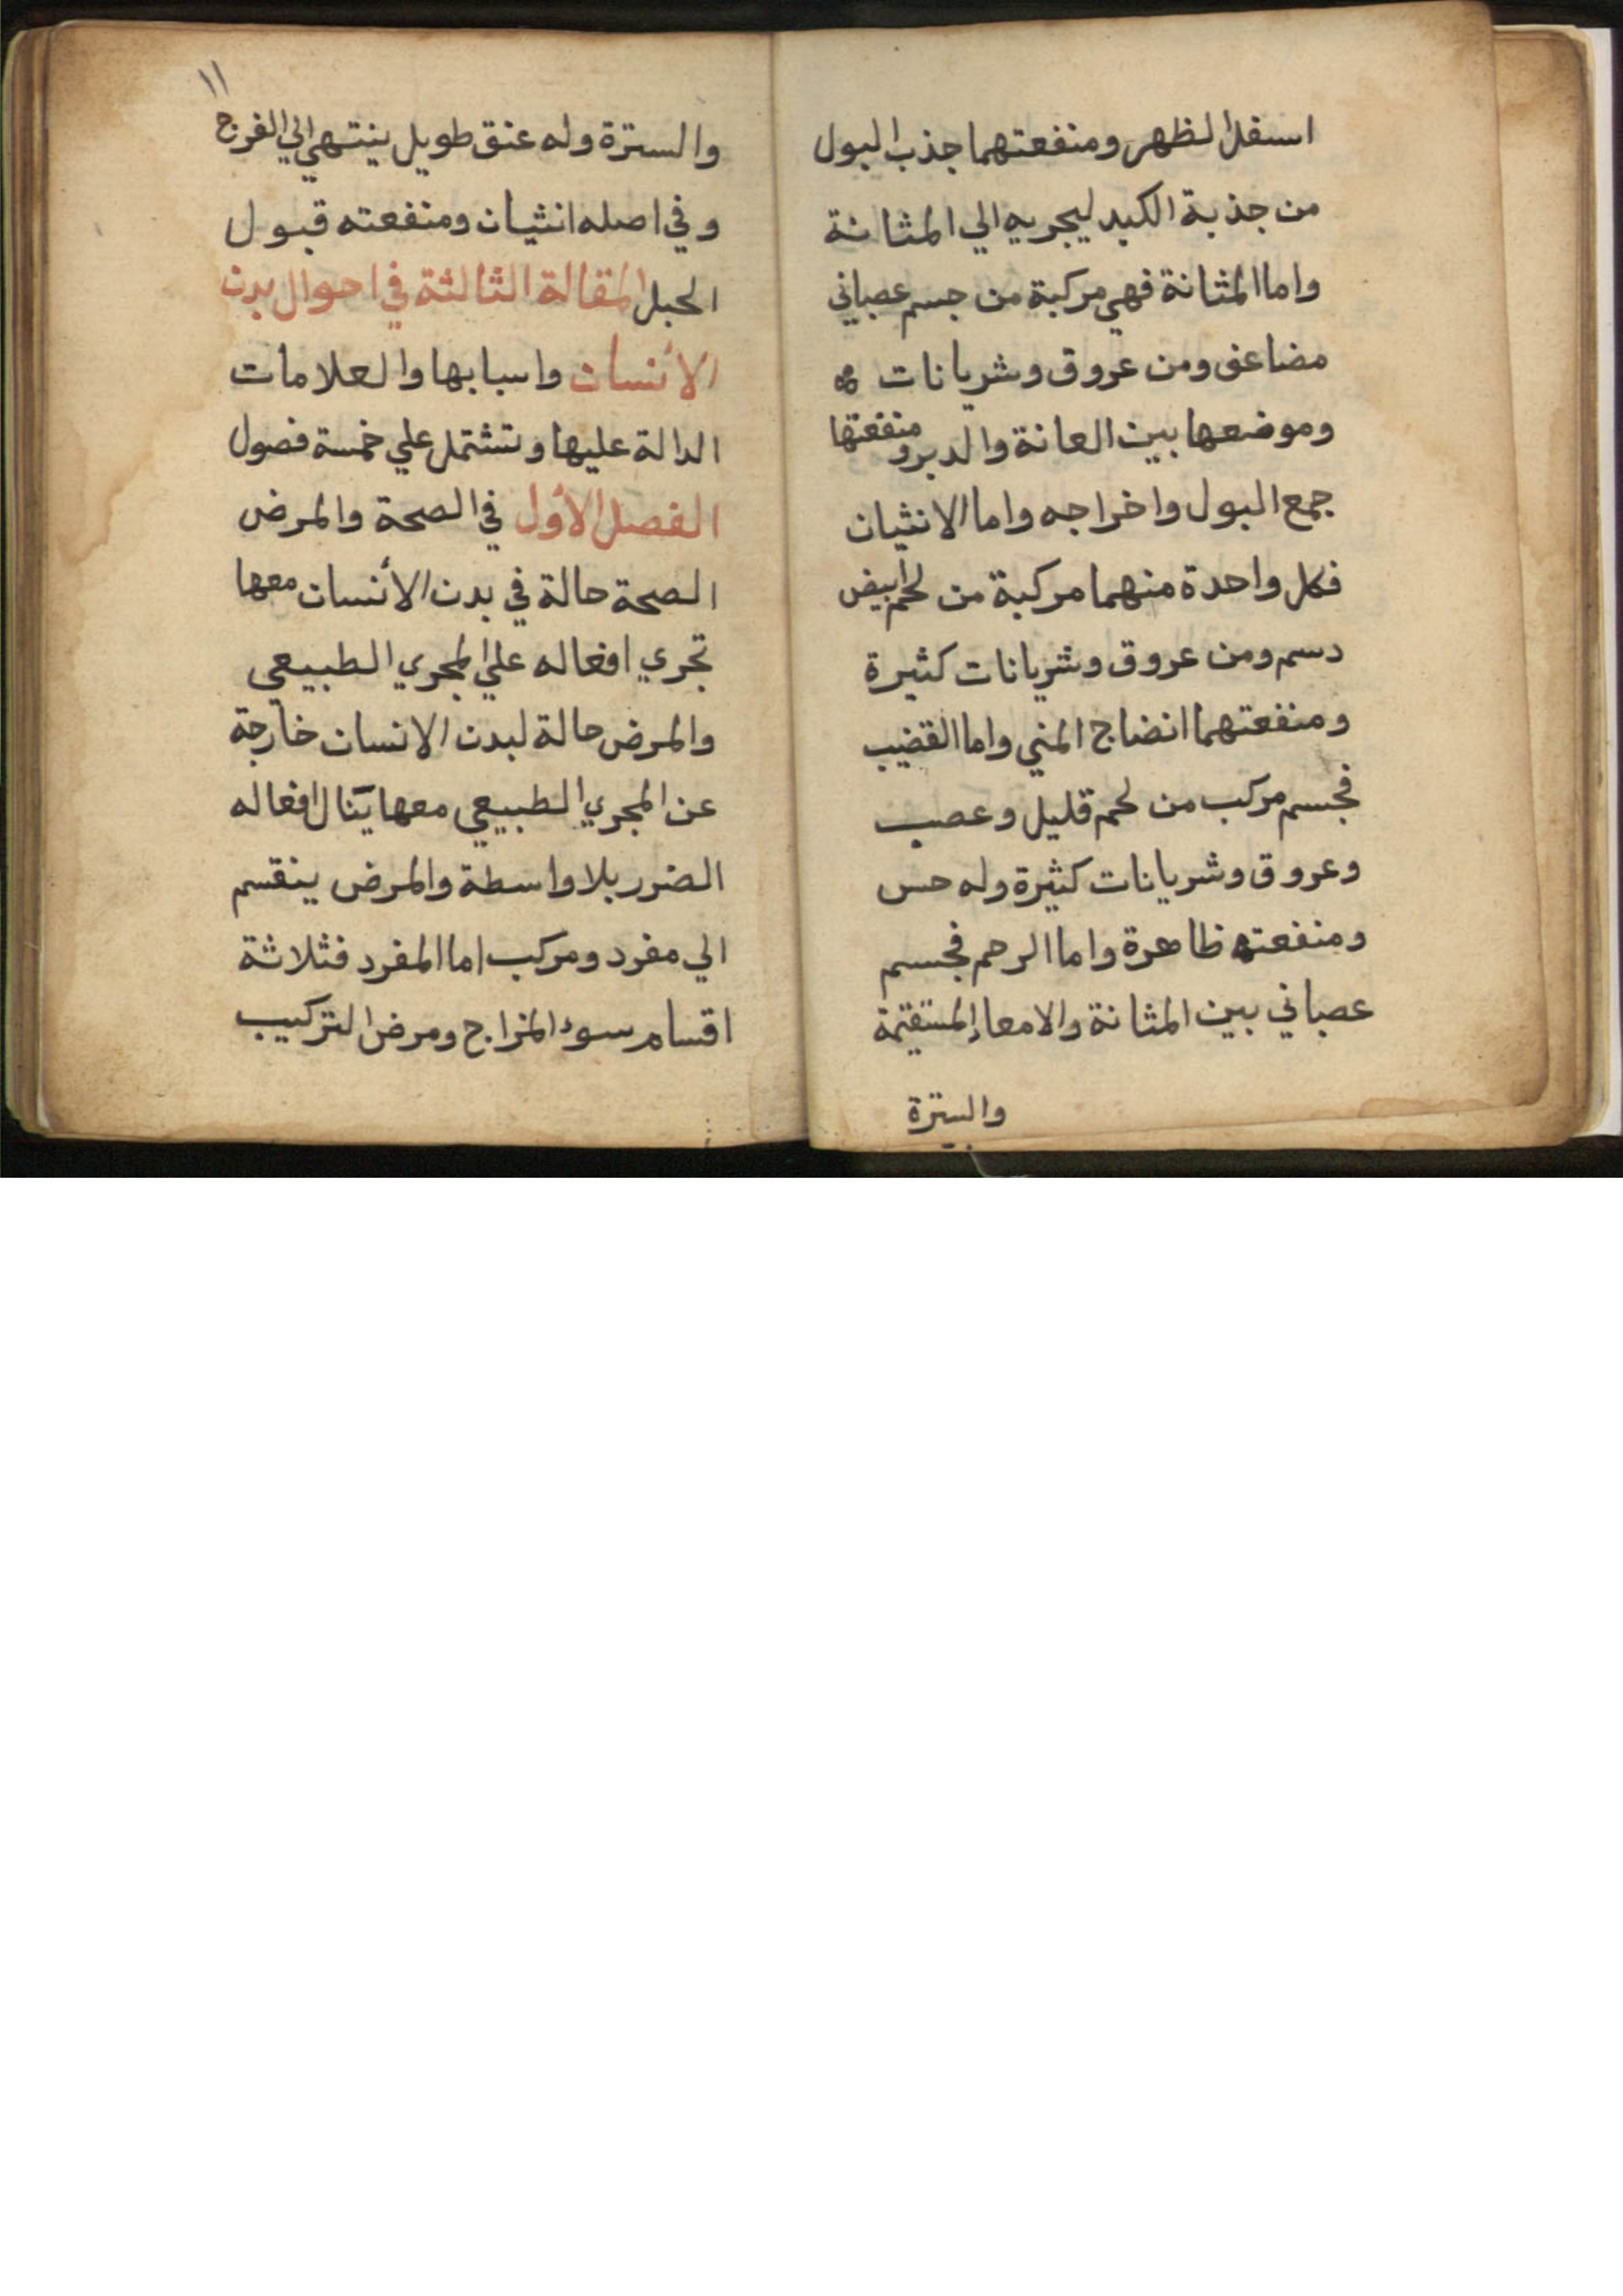 اسفل الظهر ومنفعتهما جذب البول
من جذبة الكبد ليجريه الي المثانة
واما المثانة فهي مركبة من جسم عصباني
مضاعف ومن عروق وشريانات
وموضعها بين العانة والدبر ومنفعتها
جمع البول واخراجه واما الانثيان
فكل واحدة منهما مركبة من لحم ابيض
دسم ومن عروق وشريانات كثيرة
ومنفعتهما انضاج المني واما القضيب
فجسم مركب من لحم قليل وعصب
وعروق وشريانات كثيرة وله حس
ومنفعته ظاهرة واما الرحم فجسم
عصباني بين المثانة والامعاء المستقيمة
والسترة
١١
والسترة وله عنق طويل ينتهي الي الفرج
وفي اصله انثيان ومنفعته قبول
الحبل المقالة الثالثة في احوال بدن
الأنسان واسبابها والعلامات
الدالة عليها وتشتمل علي خمسة فصول
الفصل الأول في الصحة والمرض
الصحة حالة في بدن الأنسان معها
تجري افعاله علي المجري الطبيعي
والمرض حالة لبدن الانسان خارجة
عن المجري الطبيعي معها ينال افعاله
الضرر بلا واسطة والمرض ينقسم
الي مفرد ومركب اما المفرد فثلاثة
اقسام سوء المزاج ومرض التركيب